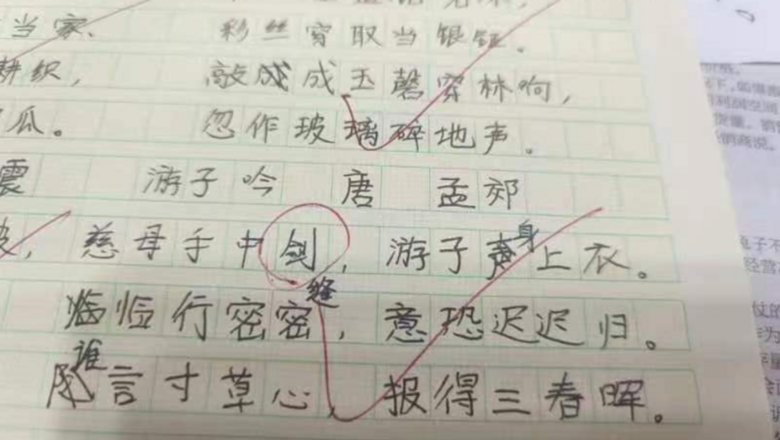 当家、 彩丝穿取当银钲。
耕织， 敲成成玉磬穿林响，
瓜。 忽作玻璃碎地声。
游子吟 唐 孟郊
慈母手中剑，游子身上衣。
临临行密密缝，意恐迟迟归。
谁言寸草心，报得三春晖。
经营